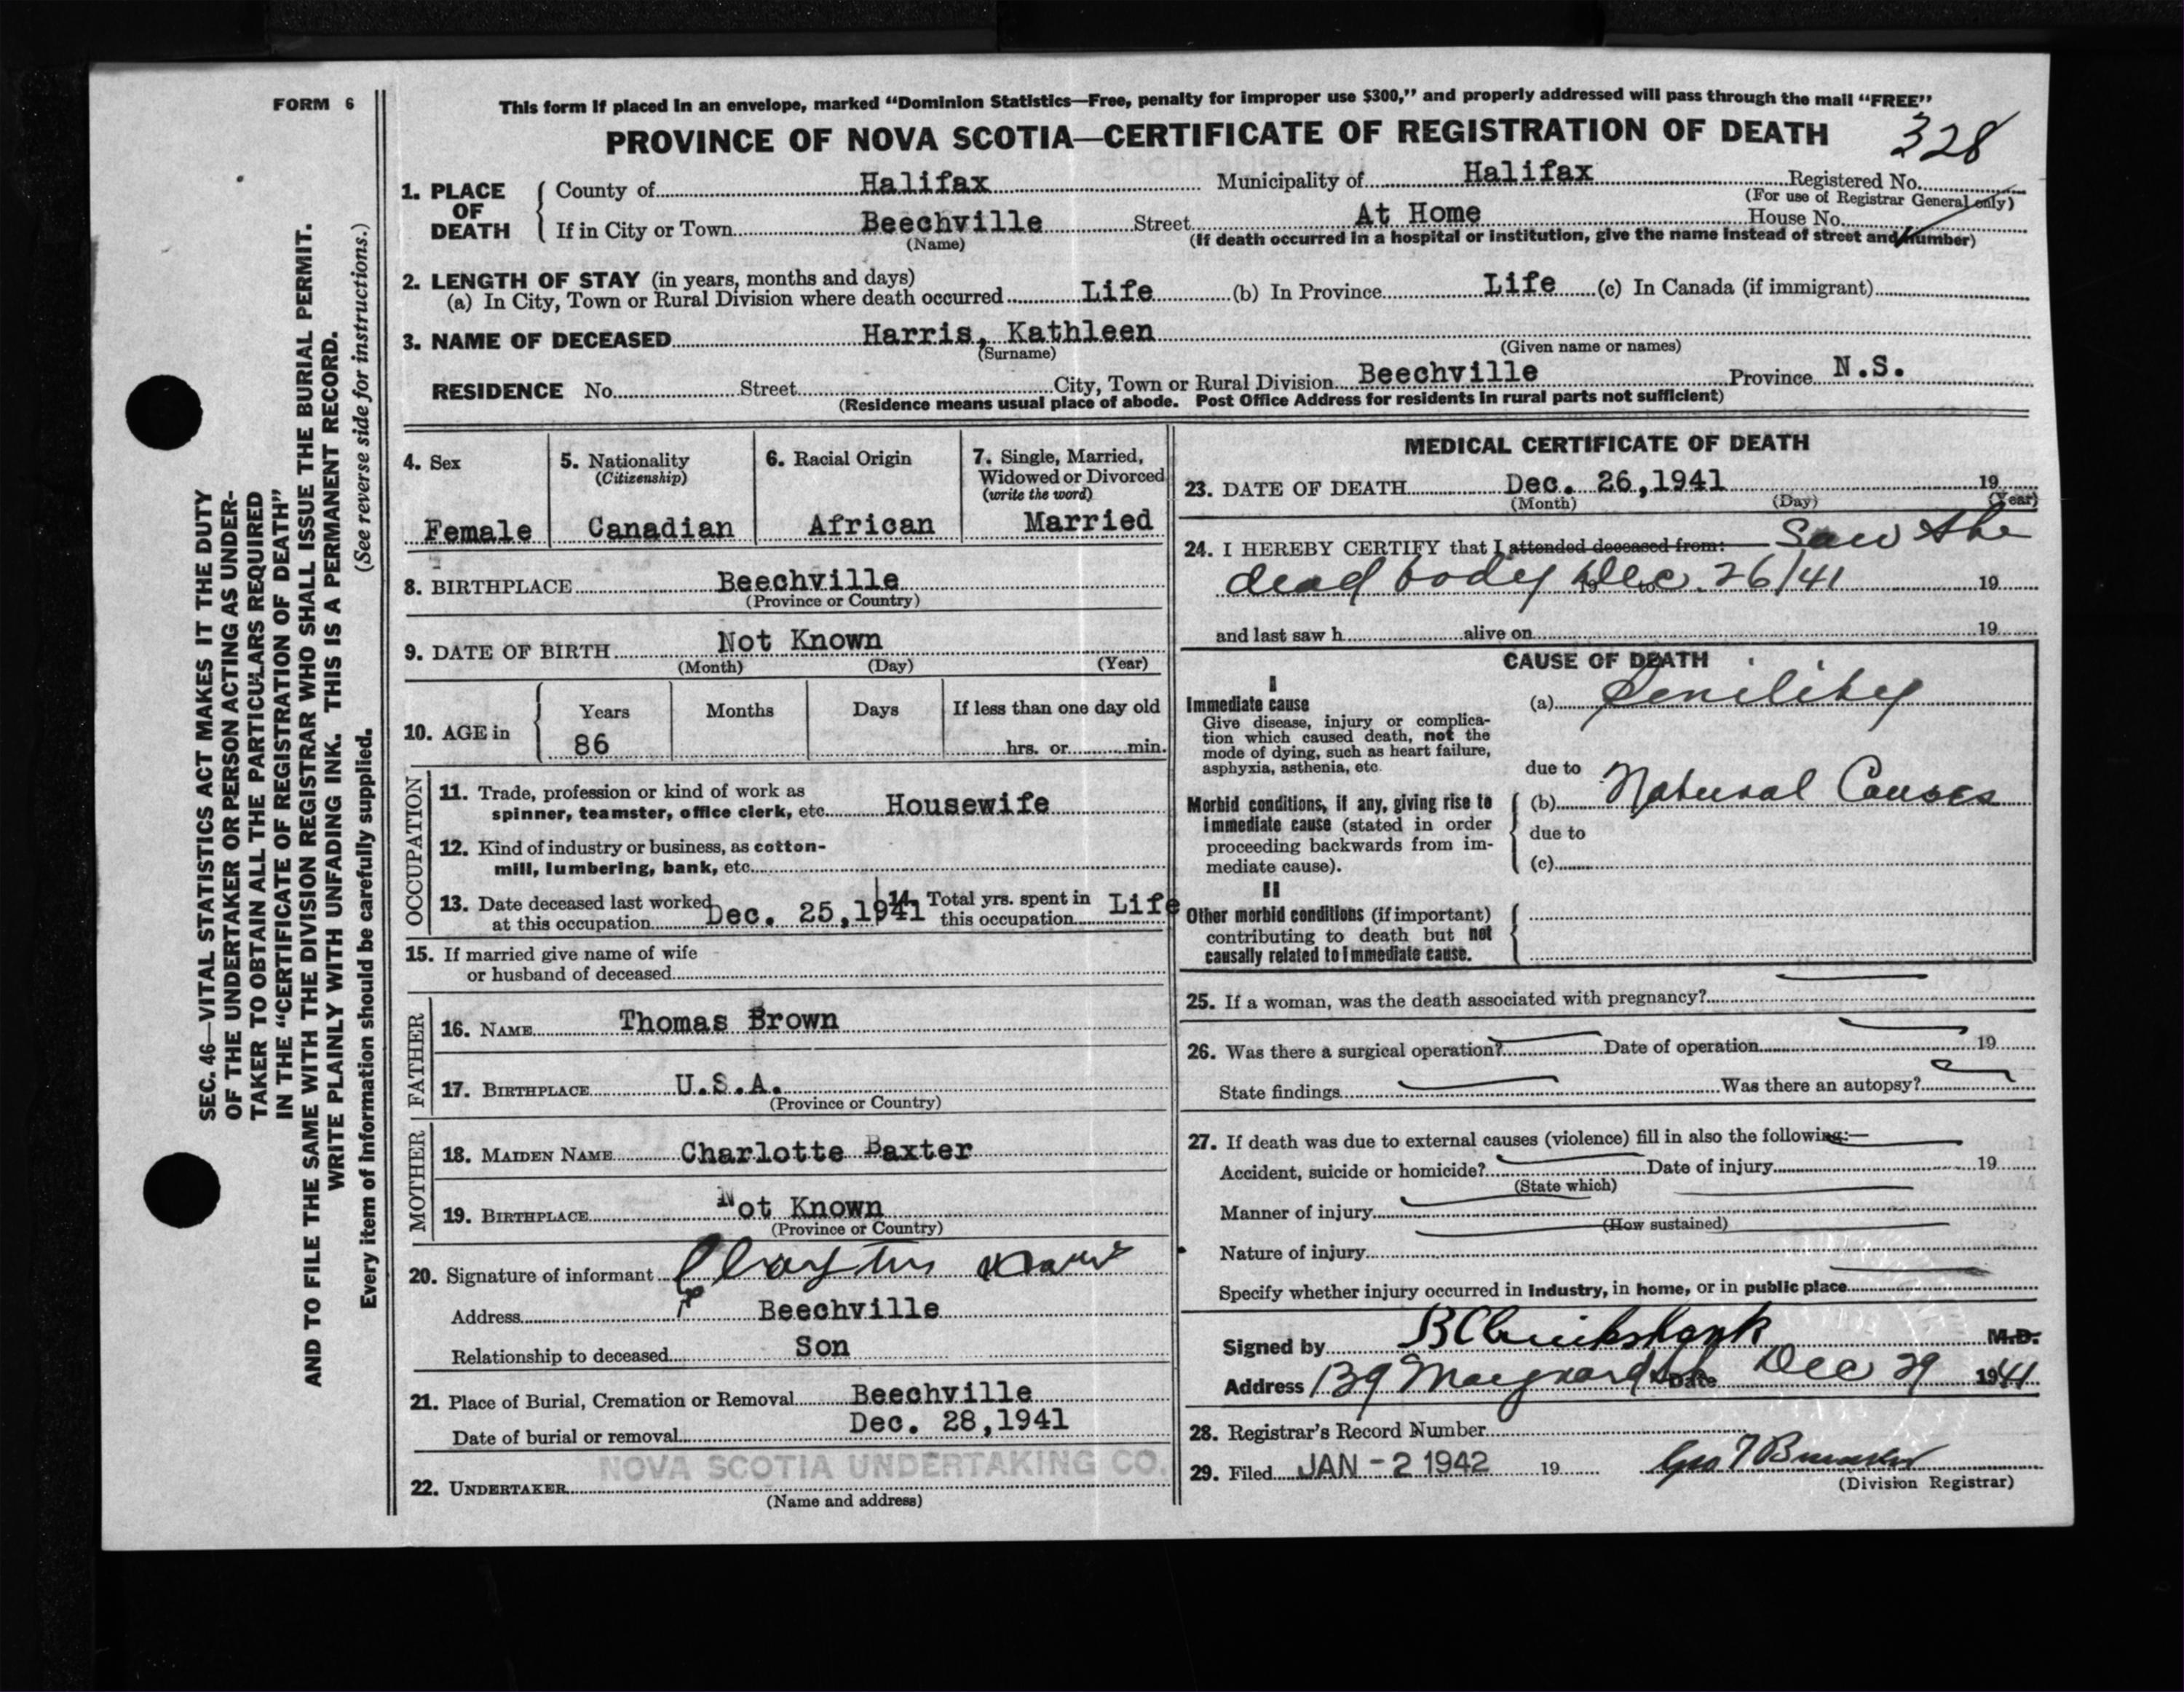 FORM 6
This form if placed in an envelope, marked “Dominion Statistics—Free, penalty for improper use $300,” and properly addressed will pass through the mail “FREE”
PROVINCE OF NOVA SCOTIA—CERTIFICATE OF REGISTRATION OF DEATH
328
1. PLACE OF DEATH
County of Halifax Municipality of Halifax Registered No.
(For use of Registrar General only)
If in City or Town Beechville Street At Home House No.
(Name) (If death occurred in a hospital or institution, give the name instead of street and number)
2. LENGTH OF STAY (in years, months and days)
(a) In City, Town or Rural Division where death occurred Life (b) In Province Life (c) In Canada (if immigrant)
3. NAME OF DECEASED Harris, Kathleen
(Surname) (Given name or names)
RESIDENCE No. Street City, Town or Rural Division Beechville Province N.S.
(Residence means usual place of abode. Post Office Address for residents in rural parts not sufficient)
4. Sex
Female
5. Nationality
(Citizenship)
Canadian
6. Racial Origin
African
7. Single, Married,
Widowed or Divorced
(write the word)
Married
8. BIRTHPLACE Beechville
(Province or Country)
9. DATE OF BIRTH Not Known
(Month) (Day) (Year)
10. AGE in
Years Months Days If less than one day old
86 hrs. or min.
OCCUPATION
11. Trade, profession or kind of work as
spinner, teamster, office clerk, etc. Housewife
12. Kind of industry or business, as cotton-
mill, lumbering, bank, etc.
13. Date deceased last worked
at this occupation Dec. 25,1941
14. Total yrs. spent in
this occupation Life
15. If married give name of wife
or husband of deceased
FATHER
16. NAME Thomas Brown
17. BIRTHPLACE U.S.A.
(Province or Country)
MOTHER
18. MAIDEN NAME Charlotte Baxter
19. BIRTHPLACE Not Known
(Province or Country)
20. Signature of informant
Address Beechville
Relationship to deceased Son
21. Place of Burial, Cremation or Removal Beechville
Date of burial or removal Dec. 28,1941
NOVA SCOTIA UNDERTAKING CO.
22. UNDERTAKER
(Name and address)
MEDICAL CERTIFICATE OF DEATH
23. DATE OF DEATH Dec. 26,1941 19
(Month) (Day) (Year)
24. I HEREBY CERTIFY that I attended deceased from: Saw the
dead body Dec. 26/41 19
and last saw h alive on 19
CAUSE OF DEATH
I
Immediate cause
Give disease, injury or complica-
tion which caused death, not the
mode of dying, such as heart failure,
asphyxia, asthenia, etc.
(a) Senility
due to
Morbid conditions, if any, giving rise to
immediate cause (stated in order
proceeding backwards from im-
mediate cause).
(b) Natural Causes
due to
(c)
II
Other morbid conditions (if important)
contributing to death but not
causally related to immediate cause.
25. If a woman, was the death associated with pregnancy?
26. Was there a surgical operation? Date of operation 19
State findings Was there an autopsy?
27. If death was due to external causes (violence) fill in also the following:—
Accident, suicide or homicide? Date of injury 19
(State which)
Manner of injury
(How sustained)
Nature of injury
Specify whether injury occurred in industry, in home, or in public place
Signed by M.D.
Address 139 Maynard St. Date Dec 29 1941
28. Registrar’s Record Number
29. Filed JAN -2 1942 19
(Division Registrar)
SEC. 46—VITAL STATISTICS ACT MAKES IT THE DUTY
OF THE UNDERTAKER OR PERSON ACTING AS UNDER-
TAKER TO OBTAIN ALL THE PARTICULARS REQUIRED
IN THE “CERTIFICATE OF REGISTRATION OF DEATH”
AND TO FILE THE SAME WITH THE DIVISION REGISTRAR WHO SHALL ISSUE THE BURIAL PERMIT.
WRITE PLAINLY WITH UNFADING INK. THIS IS A PERMANENT RECORD.
Every item of information should be carefully supplied. (See reverse side for instructions.)